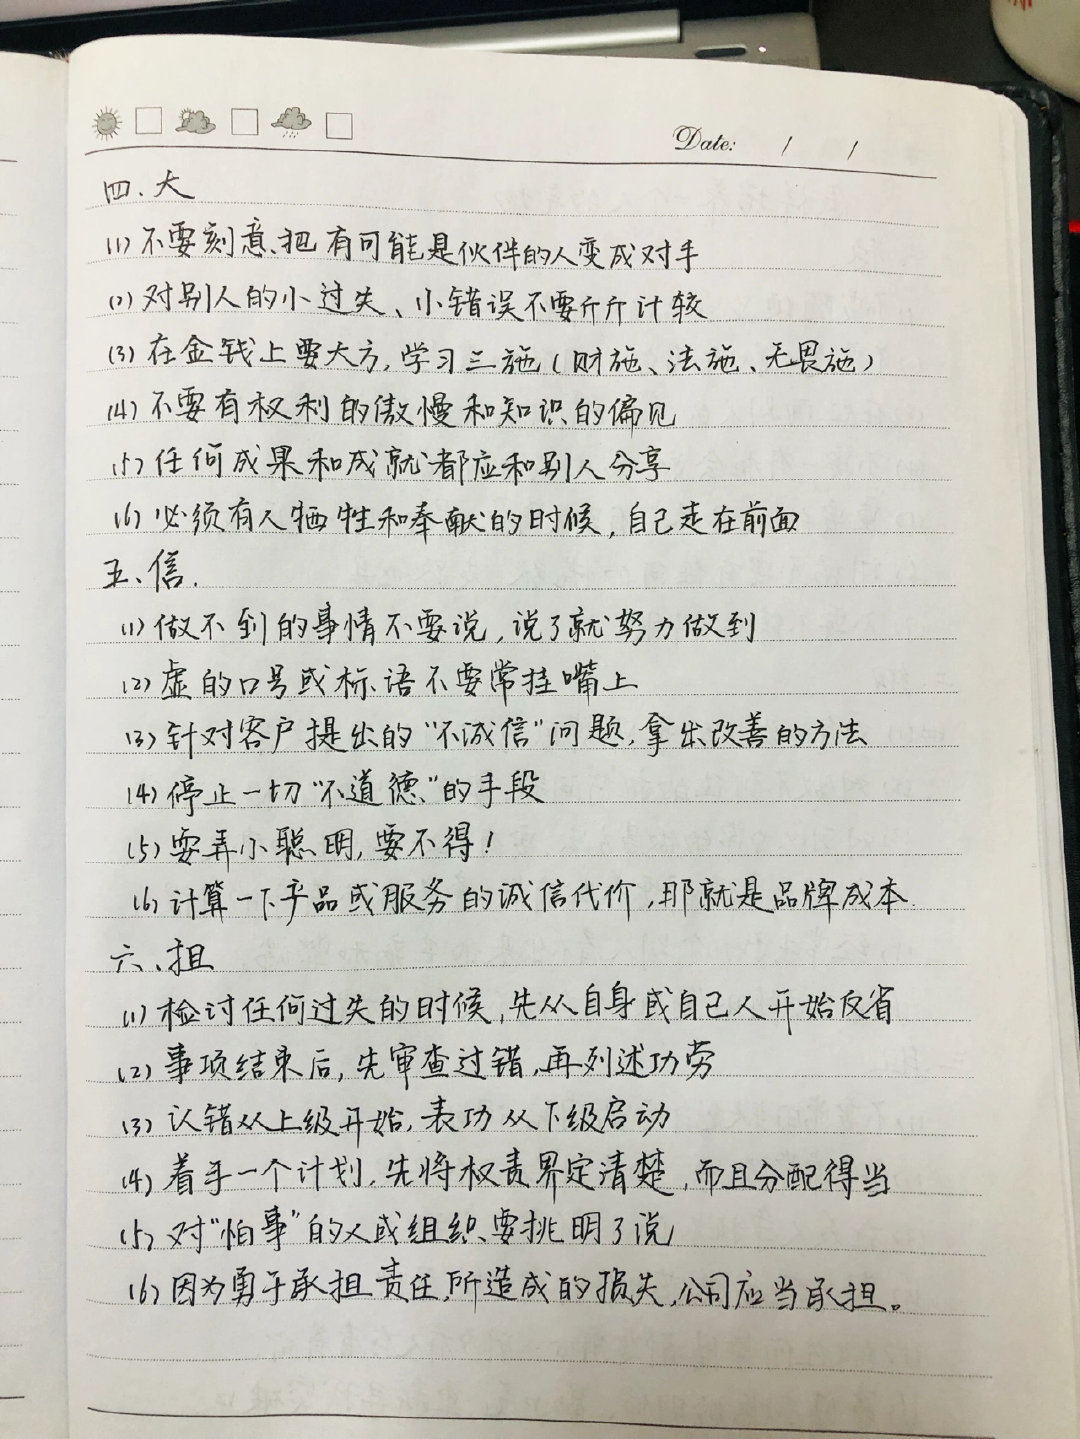 Date: / /
四、大
(1) 不要刻意把有可能是伙伴的人变成对手
(2) 对别人的小过失、小错误不要斤斤计较
(3) 在金钱上要大方,学习三施(财施、法施、无畏施)
(4) 不要有权利的傲慢和知识的偏见
(5) 任何成果和成就都应和别人分享
(6) 必须有人牺牲和奉献的时候,自己走在前面
五、信.
(1) 做不到的事情不要说,说了就努力做到
(2) 虚的口号或标语不要常挂嘴上
(3) 针对客户提出的“不诚信”问题,拿出改善的方法
(4) 停止一切“不道德”的手段
(5) 耍弄小聪明,要不得!
(6) 计算一下产品或服务的诚信代价,那就是品牌成本.
六、担
(1) 检讨任何过失的时候,先从自身或自己人开始反省
(2) 事项结束后,先审查过错,再列述功劳
(3) 认错从上级开始,表功从下级启动
(4) 着手一个计划,先将权责界定清楚,而且分配得当
(5) 对“怕事”的人或组织要挑明了说
(6) 因为勇于承担责任所造成的损失,公司应当承担。